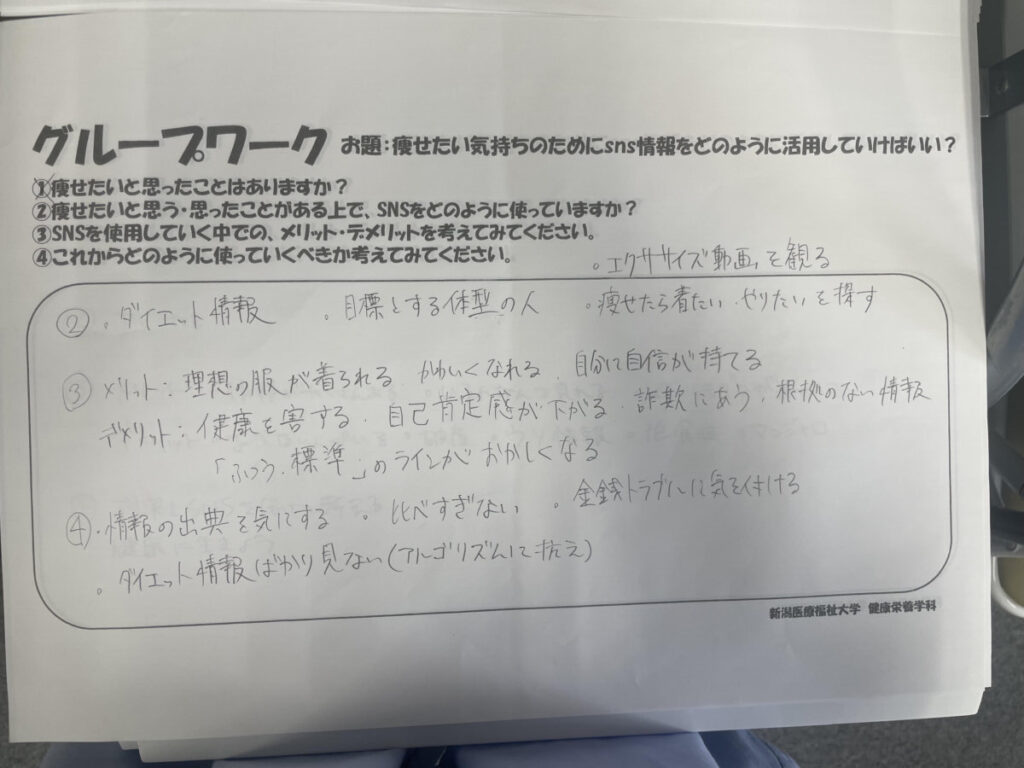 グループワーク お題:痩せたい気持ちのためにsns情報をどのように活用していけばいい?
①痩せたいと思ったことはありますか?
②痩せたいと思う・思ったことがある上で、SNSをどのように使っていますか?
③SNSを使用していく中での、メリット・デメリットを考えてみてください。
④これからどのように使っていくべきか考えてみてください。
。エクササイズ動画を観る
② 。ダイエット情報 。目標とする体型の人 。痩せたら着たい、やりたいを探す
③ メリット:理想の服が着られる かわいくなれる 自分に自信が持てる
デメリット:健康を害する、自己肯定感が下がる、詐欺にあう、根拠のない情報
「ふつう、標準」のラインがおかしくなる
④ ・情報の出典を気にする 。比べすぎない 。金銭トラブルに気を付ける
。ダイエット情報ばかり見ない(アルゴリズムに抗え)
新潟医療福祉大学 健康栄養学科